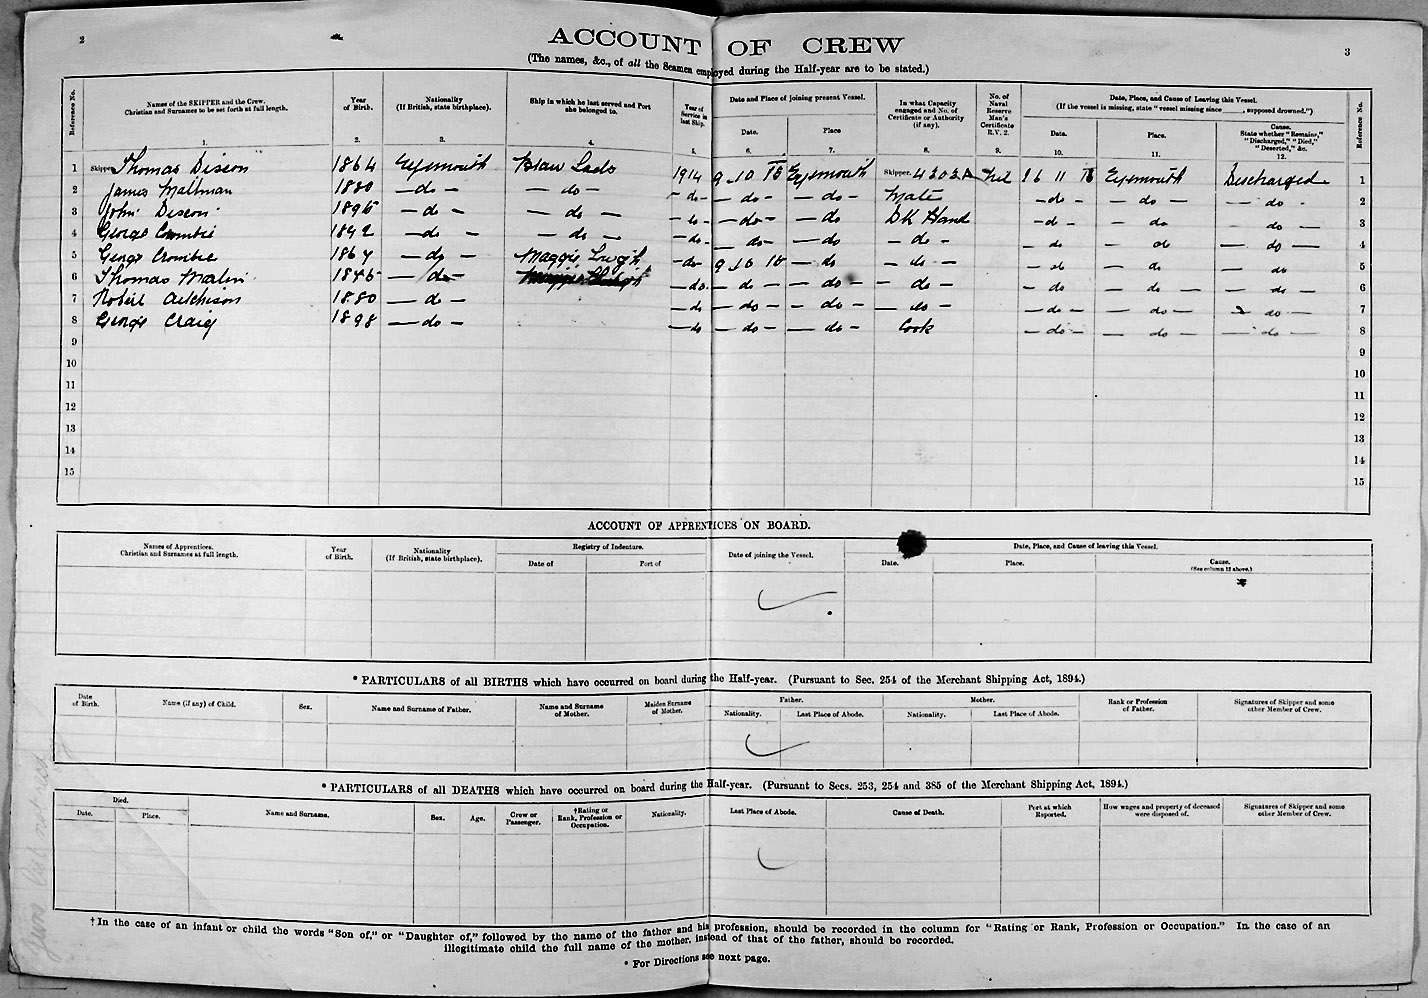 2
3
ACCOUNT OF CREW
(The names, &c., of all the Seamen employed during the Half-year are to be stated.)
Reference No. Names of the SKIPPER and the Crew. Christian and Surnames to be set forth at full length. Year of Birth. Nationality (If British, state birthplace). Ship in which he last served and Port she belonged to. Year of Service in last Ship. Date and Place of joining present Vessel. In what Capacity engaged and No. of Certificate or Authority (if any). No. of Naval Reserve Man's Certificate R.V. 2. Date, Place, and Cause of Leaving this Vessel. (If the vessel is missing, state "vessel missing since ____, supposed drowned.") Reference No.
Date. Place Date. Place. Cause. State whether "Remains," "Discharged," "Died," "Deserted," &c.
1. 2. 3. 4. 5. 6. 7. 8. 9. 10. 11. 12.
1 Skipper Thomas Disson 1864 Eyemouth Braw Lads 1914 9 10 15 Eyemouth Skipper. Nil 16 11 Eyemouth Discharged 1
2 James Maltman 1880 — do — — do — — do — — do — — do — Mate — do — — do — — do - 2
3 John Disson 1895 — do — — do — — do — — do — — do DK Hand — d — — do — do — 3
4 George Crombie 1892 — do — — do — — do — — do — — do — do — — do — do — do — 4
5 George Crombie 1867 — do — Maggie — do 9 10 15 — do — do — — do — do — do 5
6 Thomas 1845 — do — — do — do — — do — — do — — do — do — — do — 6
7 Robert Aitchison 1880 — do — — do — do — — do — — do — — do — — do — do — 7
8 George Craig 1898 — do — — do — do — — do — Cook — do — — do — — do — 8
9 9
10 10
11 11
12 12
13 13
14 14
15 15
ACCOUNT OF APPRENTICES ON BOARD.
Names of Apprentices. Christian and Surnames at full length. Year of Birth. Nationality (If British, state birthplace). Registry of Indenture. Date of joining the Vessel. Date, Place, and Cause of leaving this Vessel.
Date of Port of Date. Place. Cause. (See column 12 above.)
* PARTICULARS of all BIRTHS which have occurred on board during the Half-year. (Pursuant to Sec. 254 of the Merchant Shipping Act, 1894.)
Date of Birth. Name (if any) of Child. Sex. Name and Surname of Father. Name and Surname of Mother. Maiden Surname of Mother. Father. Mother. Rank or Profession of Father. Signatures of Skipper and some other Member of Crew.
Nationality. Last Place of Abode. Nationality. Last Place of Abode.
* PARTICULARS of all DEATHS which have occurred on board during the Half-year. (Pursuant to Secs. 253, 254 and 385 of the Merchant Shipping Act, 1894.)
Died. Name and Surname. Sex. Age. Crew or Passenger. †Rating or Rank, Profession or Occupation. Nationality. Last Place of Abode. Cause of Death. Port at which Reported. How wages and property of deceased were disposed of. Signatures of Skipper and some other Member of Crew.
Date. Place.
† In the case of an infant or child the words "Son of," or "Daughter of," followed by the name of the father and his profession, should be recorded in the column for "Rating or Rank, Profession or Occupation." In the case of an
illegitimate child the full name of the mother, instead of that of the father, should be recorded.
* For Directions see next page.